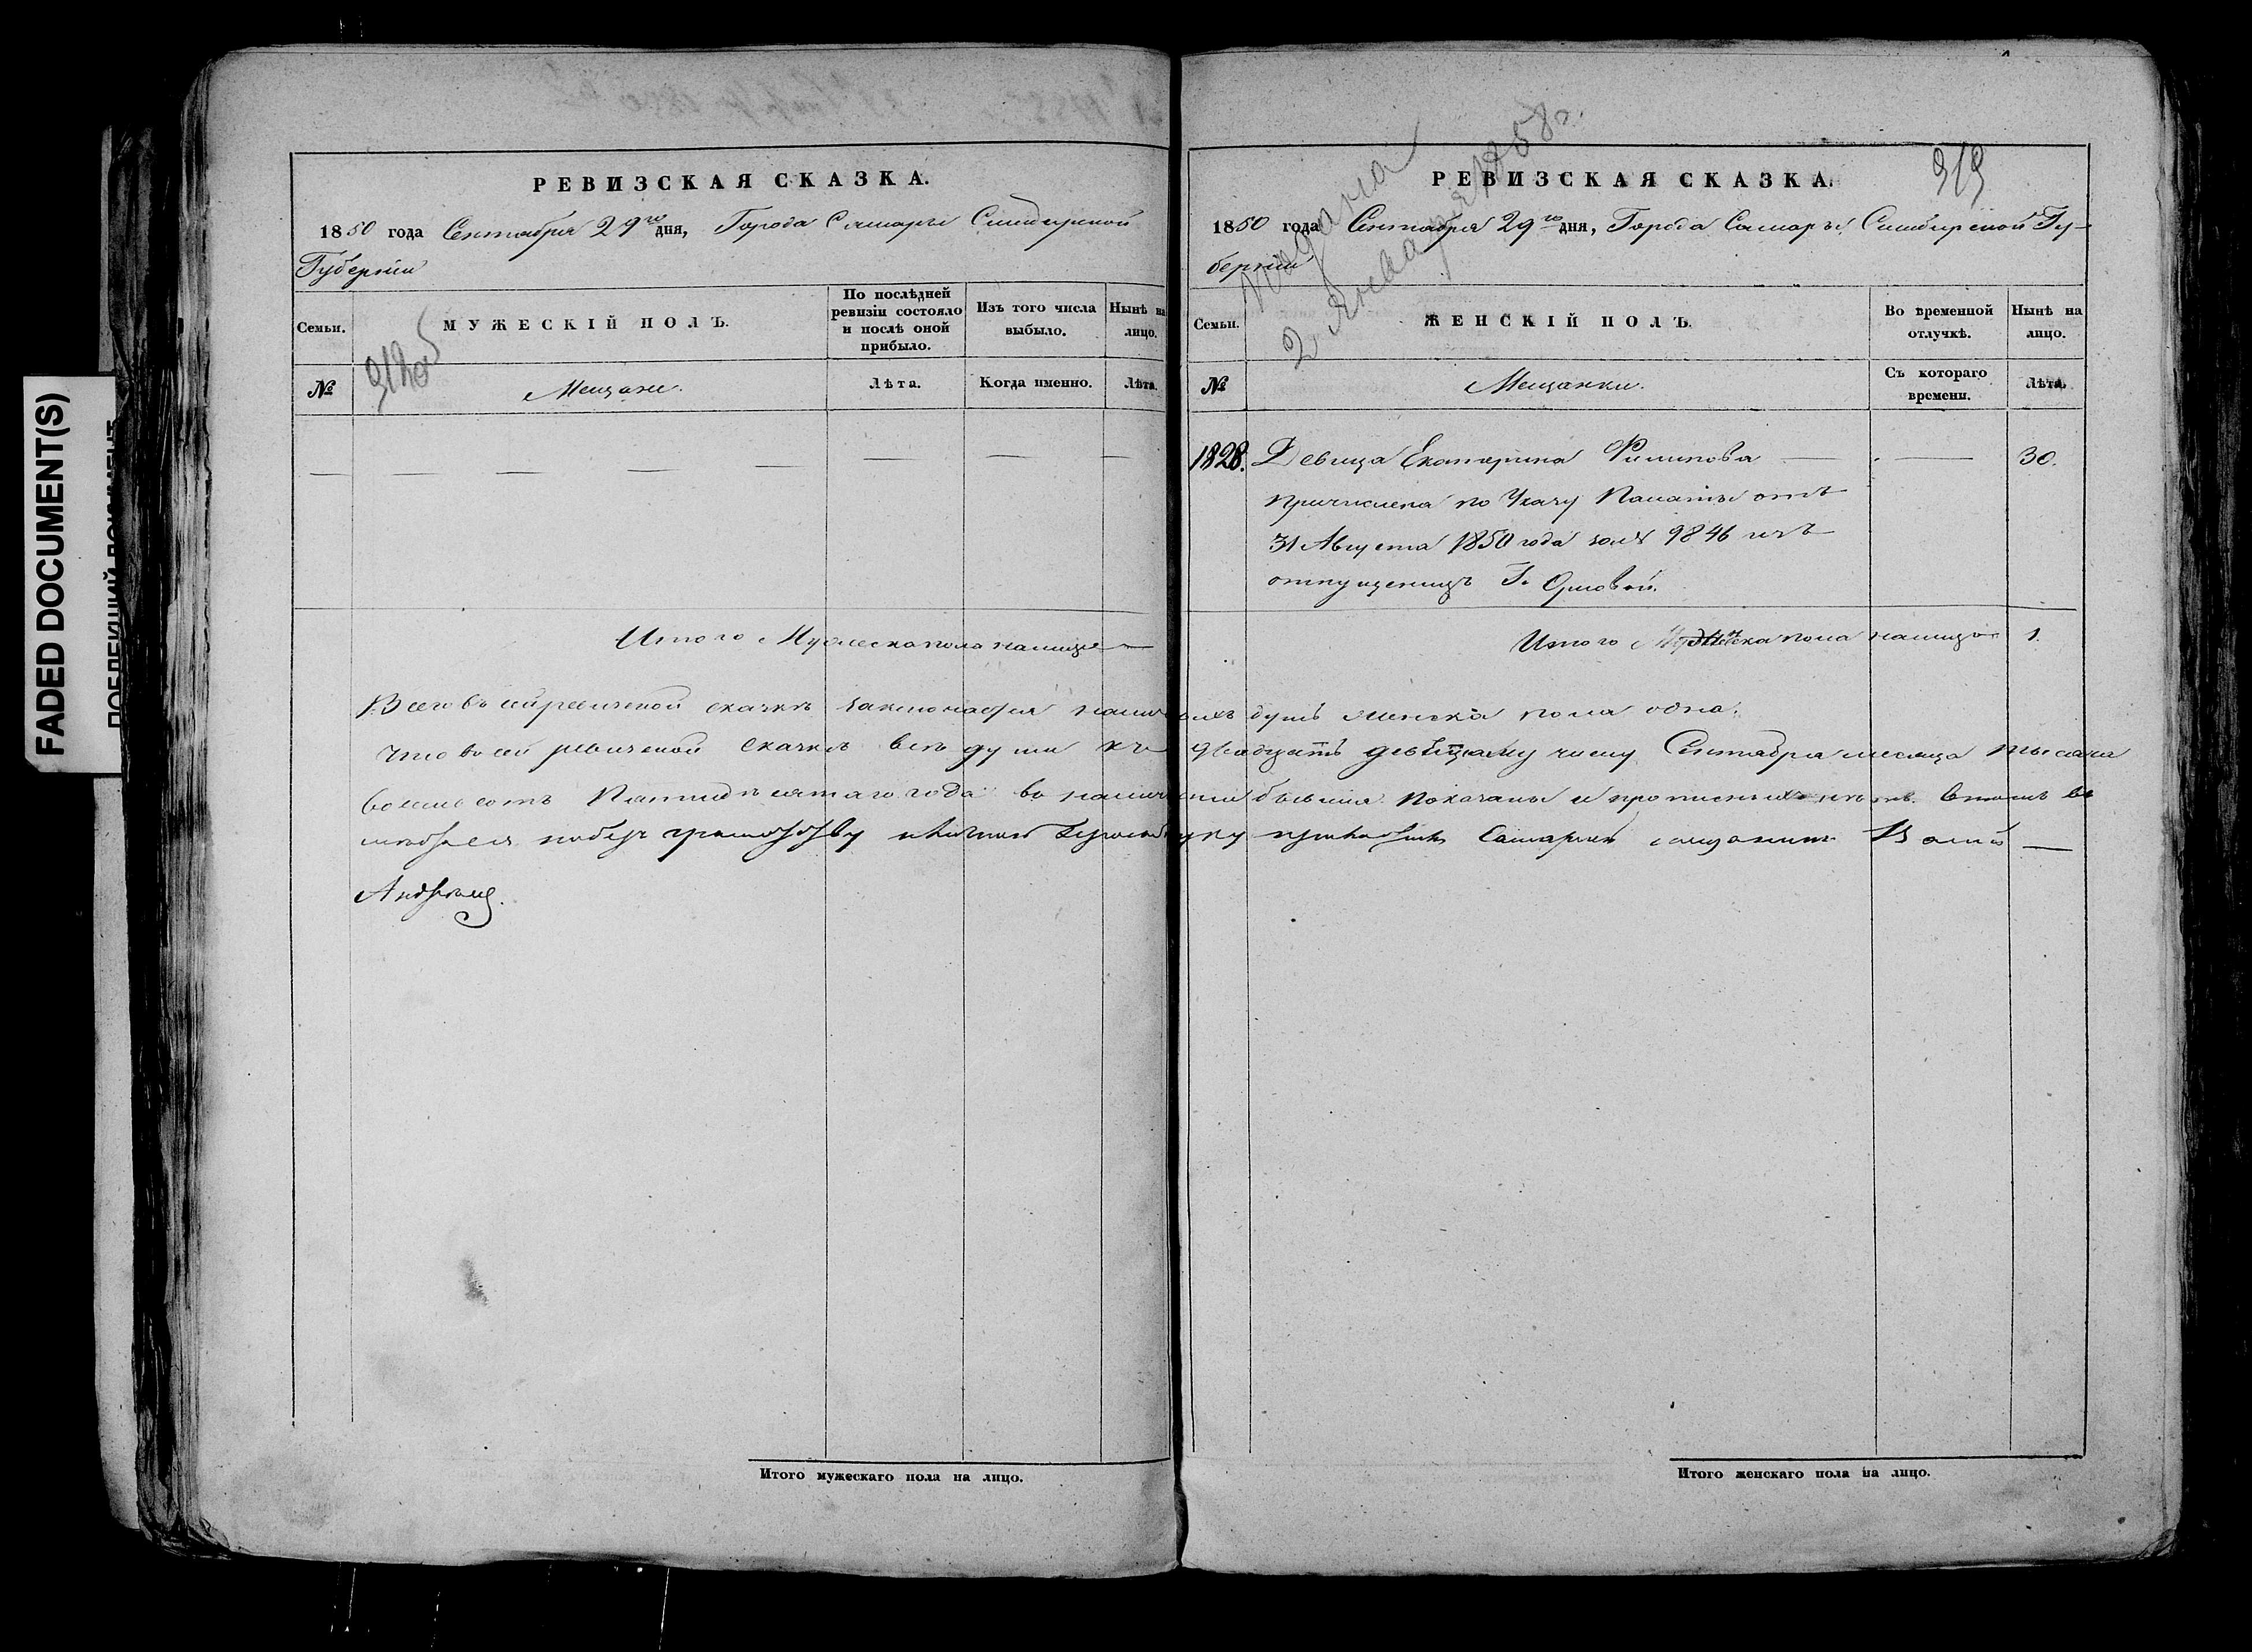 FADED DOCUMENT(S)
РЕВИЗСКАЯ СКАЗКА.
1850 года Сентября 29го дня, Города Самары Симбирской
Губернiи
Семьи.
МУЖЕСКIЙ ПОЛЪ.
По послѣдней
ревизiи состояло
и послѣ оной
прибыло.
Изъ того числа
выбыло.
Нынѣ на
лицо.
№
Мещане.
Лѣта.
Когда именно.
Лѣта.
Итого Мужеска пола налицо —
РЕВИЗСКАЯ СКАЗКА.
919
1850 года Сентября 29го дня, Города Самары Симбирской Гу-
бернiи
Подана
2 Января 1858 г.
Семьи.
ЖЕНСКIЙ ПОЛЪ.
Во временной
отлучкѣ.
Нынѣ на
лицо.
№
Мещанки.
Съ котораго
времени.
Лѣта.
1828. Девица Екатерина Филипова — — 30.
причислена по Указу Палаты отъ
31 Августа 1850 года за № 9846 изъ
отпущеницъ Г. Орловой.
Итого Женска пола налицо 1.
Всего въ сей ревизской сказкѣ заключается наличныхъ душъ женска пола одна.
Что во сей ревизской сказкѣ всѣ души къ двадцать девятому числу Сентября месяца тысяча
восемьсотъ Пятидесятаго года во наличiи бывшiя показаны и прописныхъ нѣтъ. Въ томъ
Итого мужескаго пола на лицо.
Итого женскаго пола на лицо.